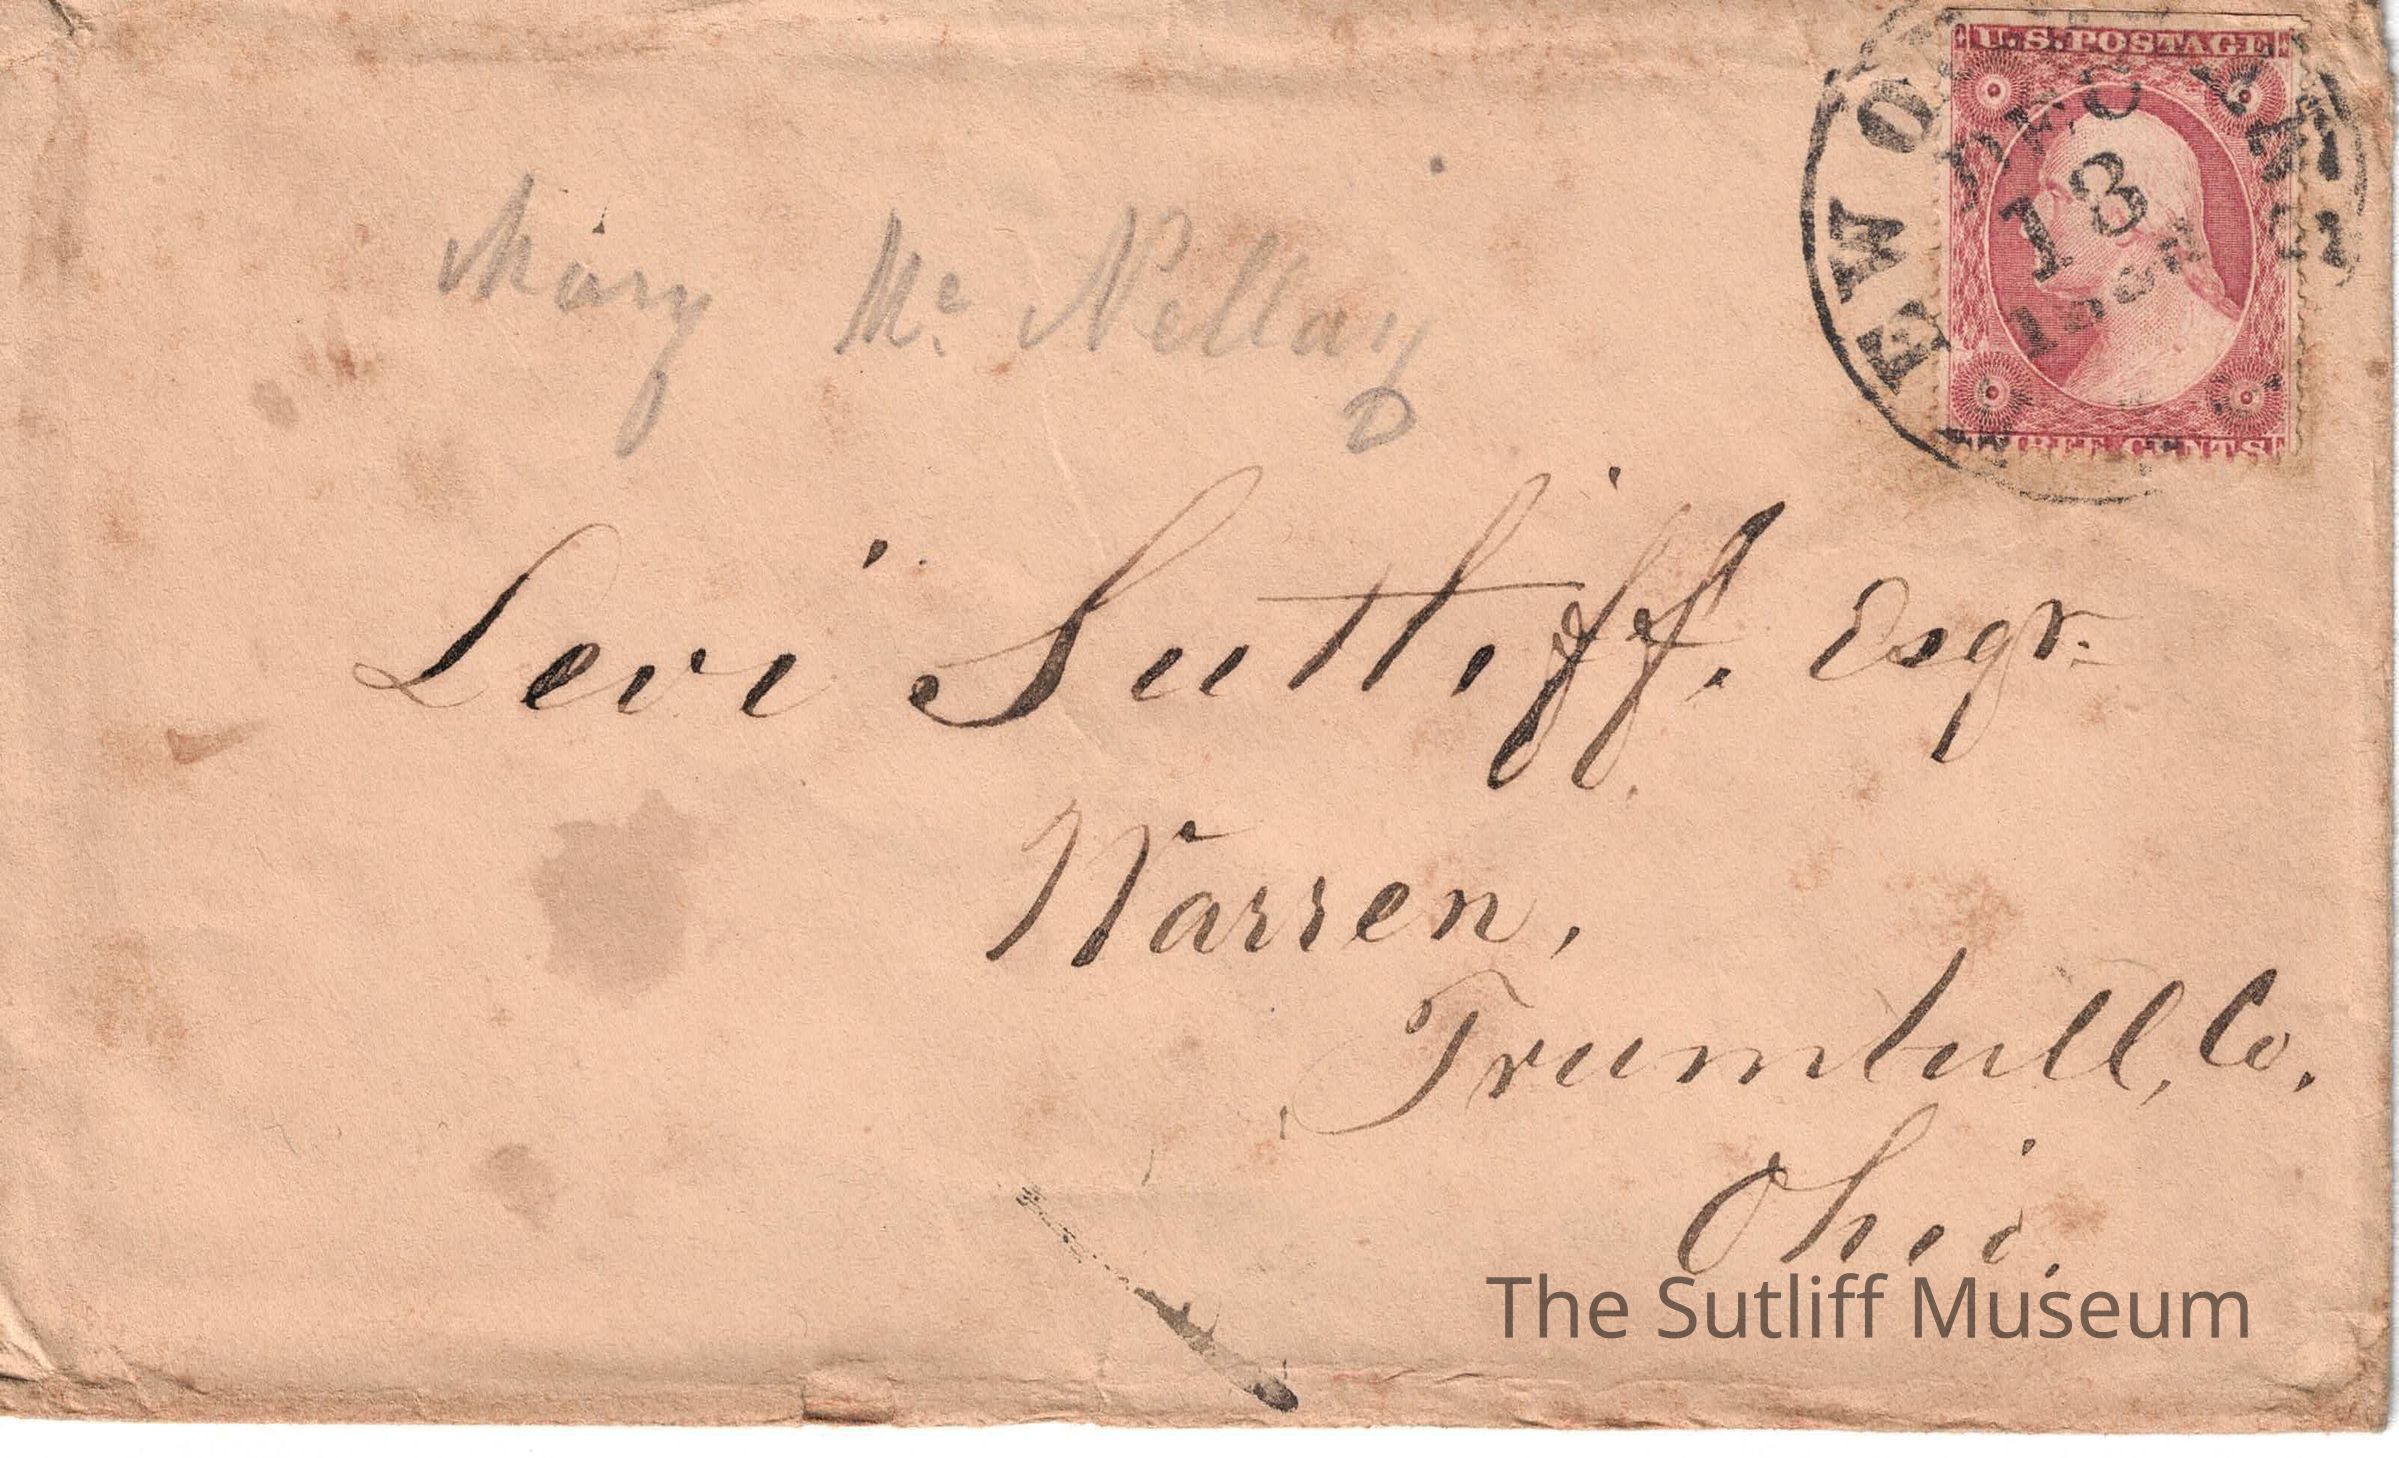 U.S. POSTAGE
DEC
18
THREE CENTS
Mary Mc Nellay
D
Levi Sutliff. Esqr.
Warren,
Trumbull, Co.
Ohio.
The Sutliff Museum